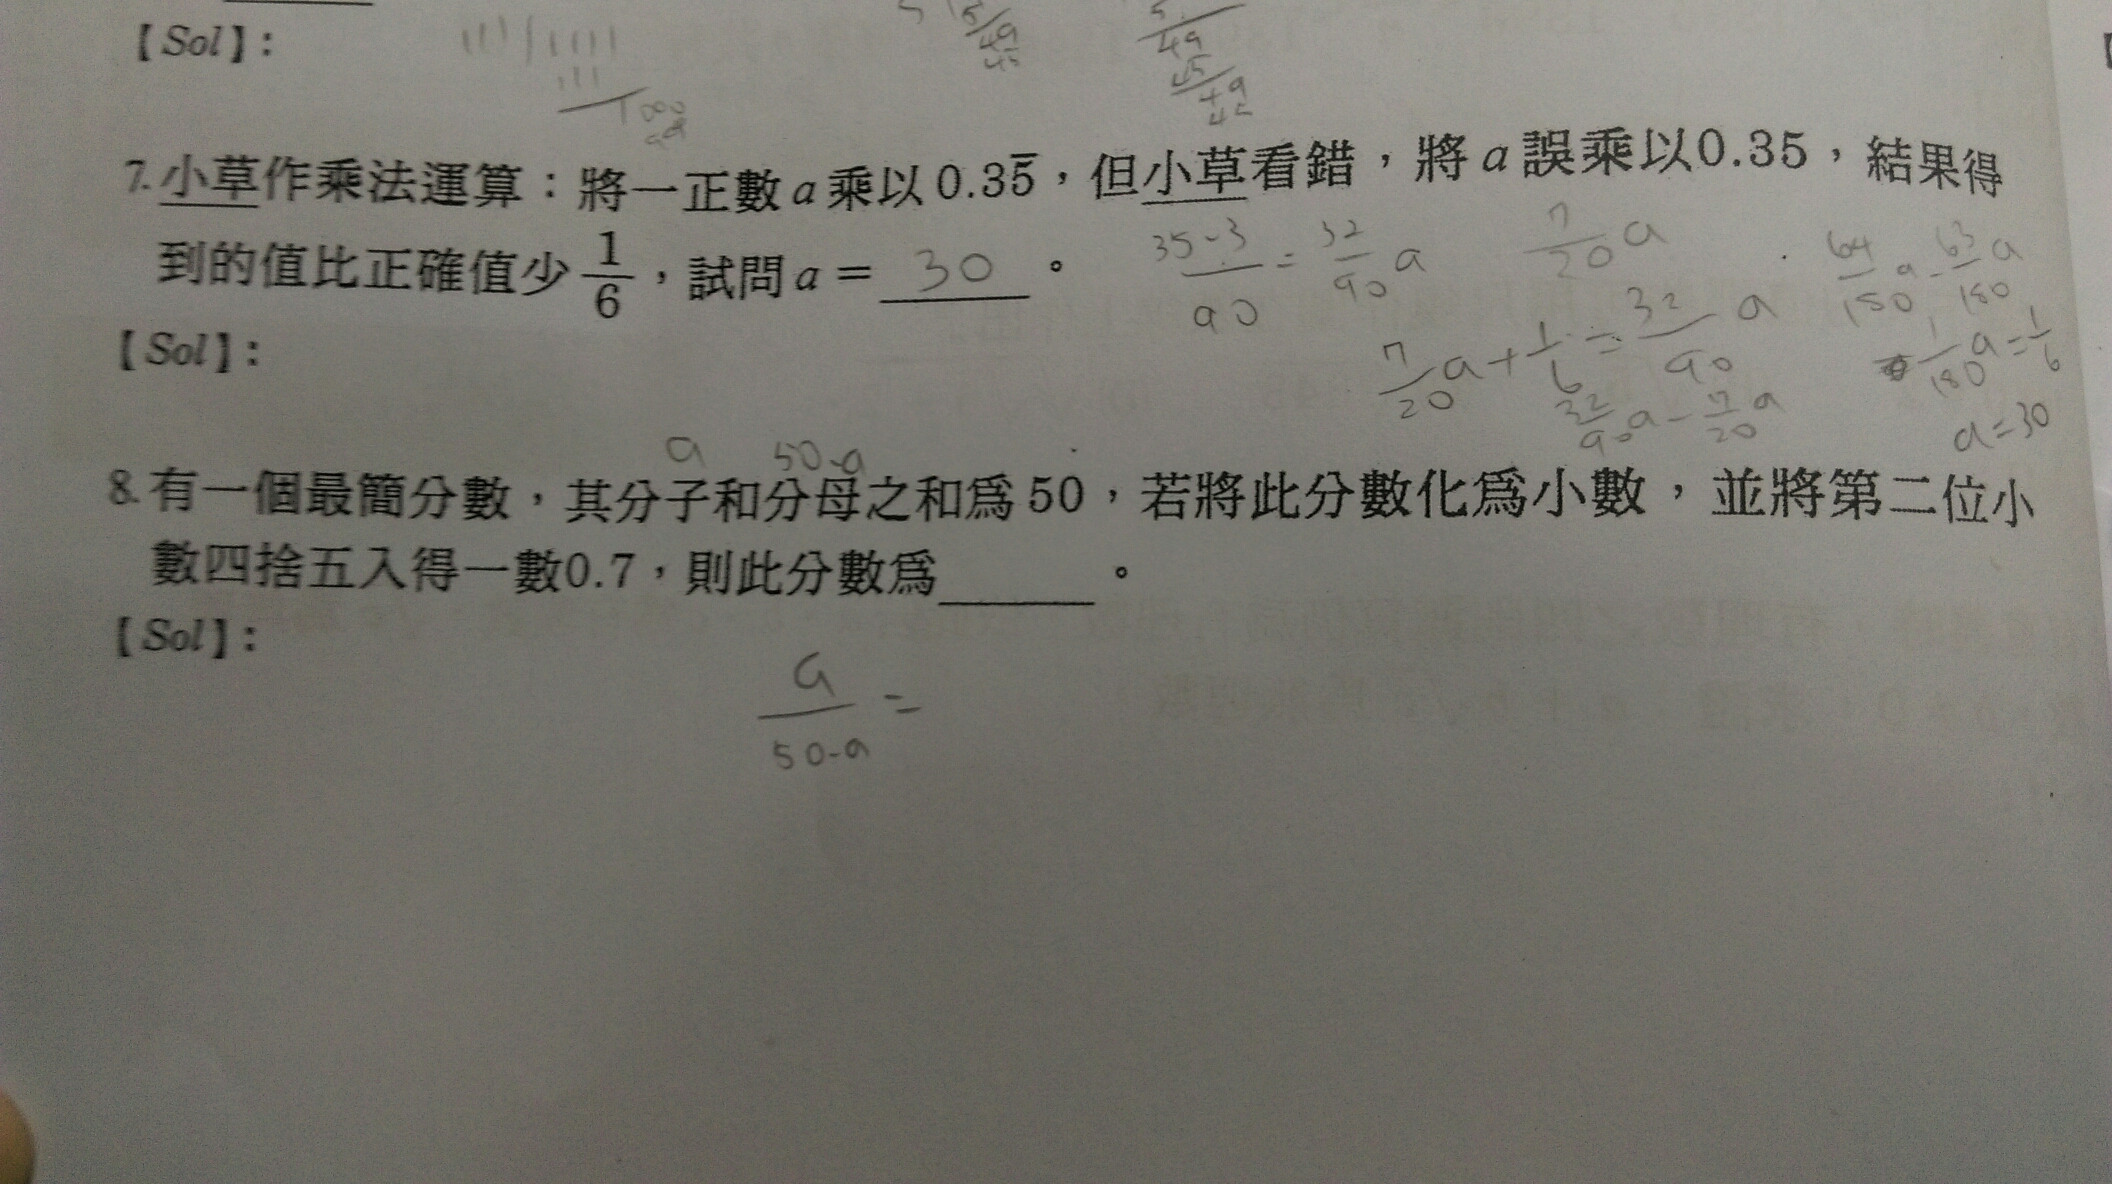 【Sol】:
7. 小草作乘法運算：將一正數 a 乘以 0.35̅，但小草看錯，將 a 誤乘以0.35，結果得
到的值比正確值少 1/6，試問 a = 30 。
35-3/90 = 32/90 a
7/20 a
64/180 a - 63/180 a
1/180 a = 1/6
a = 30
7/20 a + 1/6 = 32/90 a
32/90 a - 7/20 a
【Sol】:
a 50-a
8. 有一個最簡分數，其分子和分母之和爲 50，若將此分數化爲小數，並將第二位小
數四捨五入得一數0.7，則此分數爲______。
【Sol】:
a/50-a =